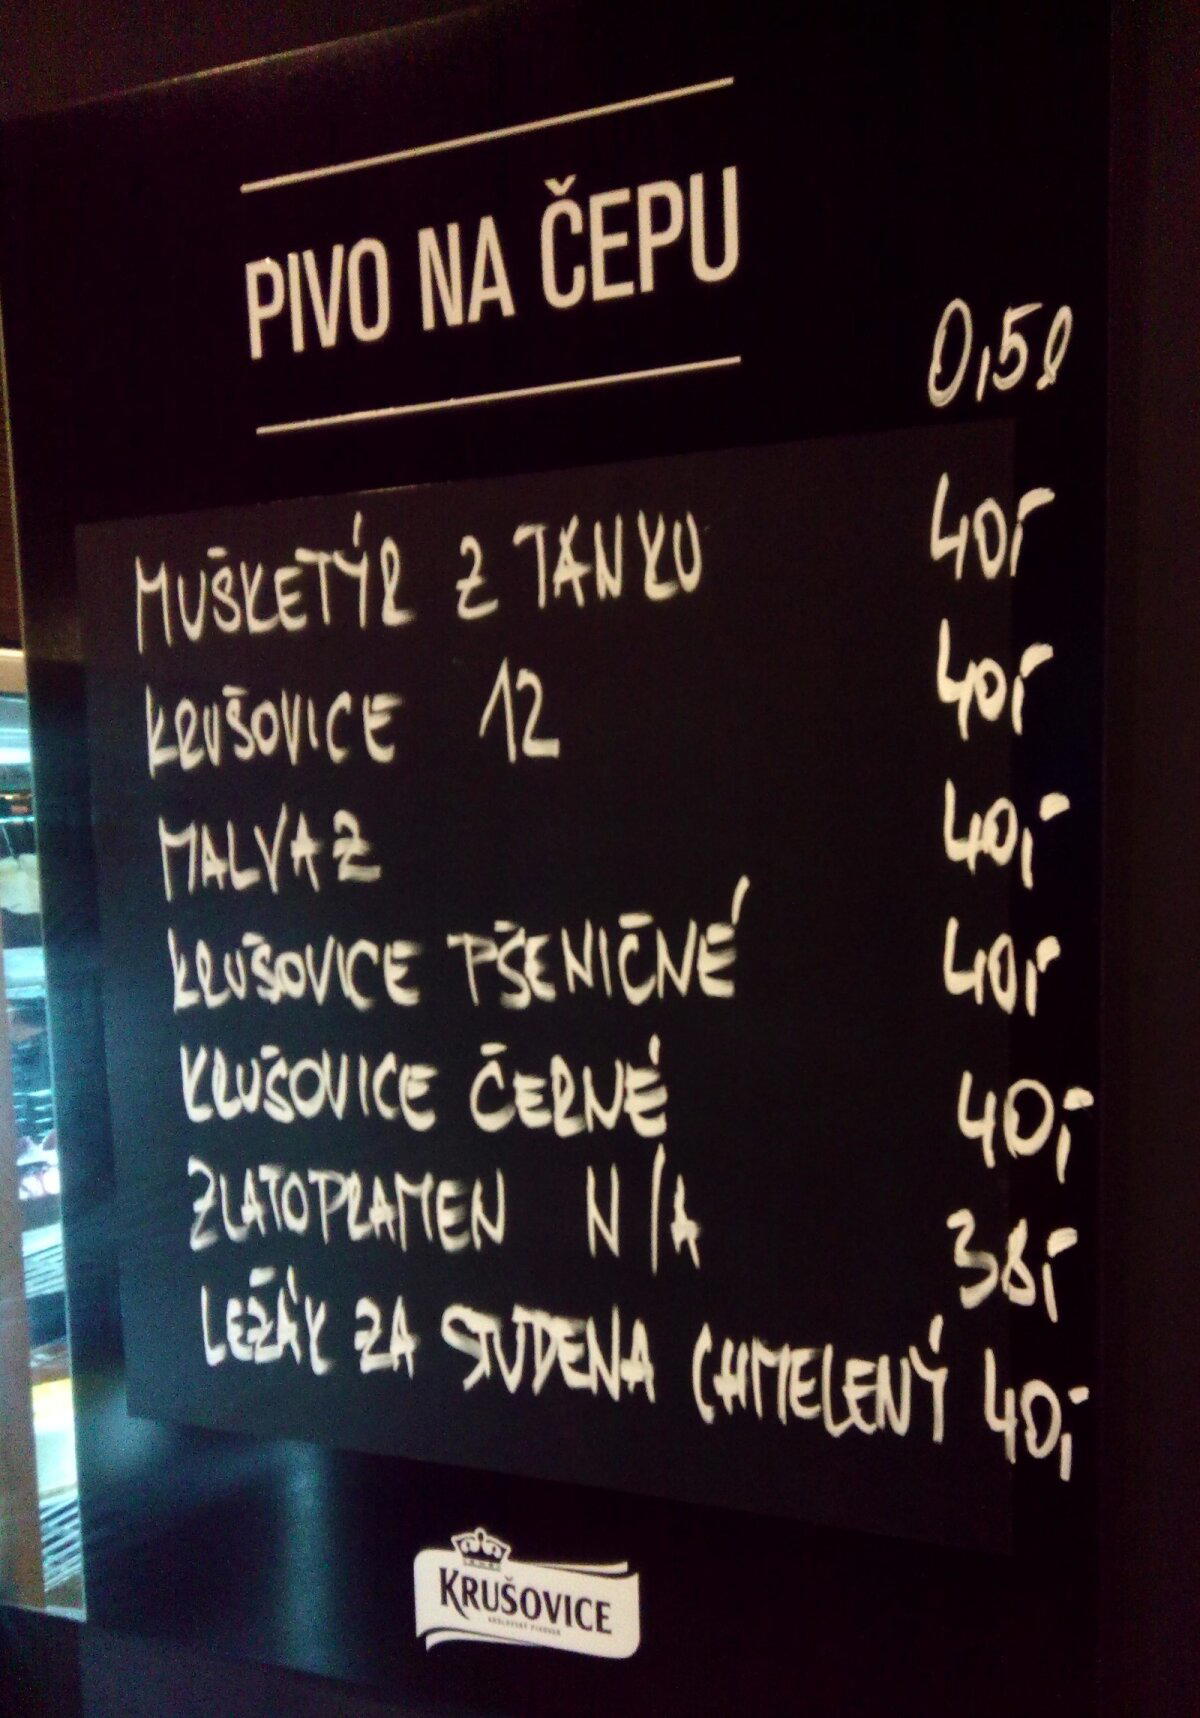 PIVO NA ČEPU
0,5l
MUŠKETÝR Z TANKU 40,-
KRUŠOVICE 12 40,-
MALVAZ 40,-
KRUŠOVICE PŠENIČNÉ 40,-
KRUŠOVICE ČERNÉ 40,-
ZLATOPRAMEN N/A 38,-
LEŽÁK ZA STUDENA CHMELENÝ 40,-
KRUŠOVICE
KRÁLOVSKÝ PIVOVAR